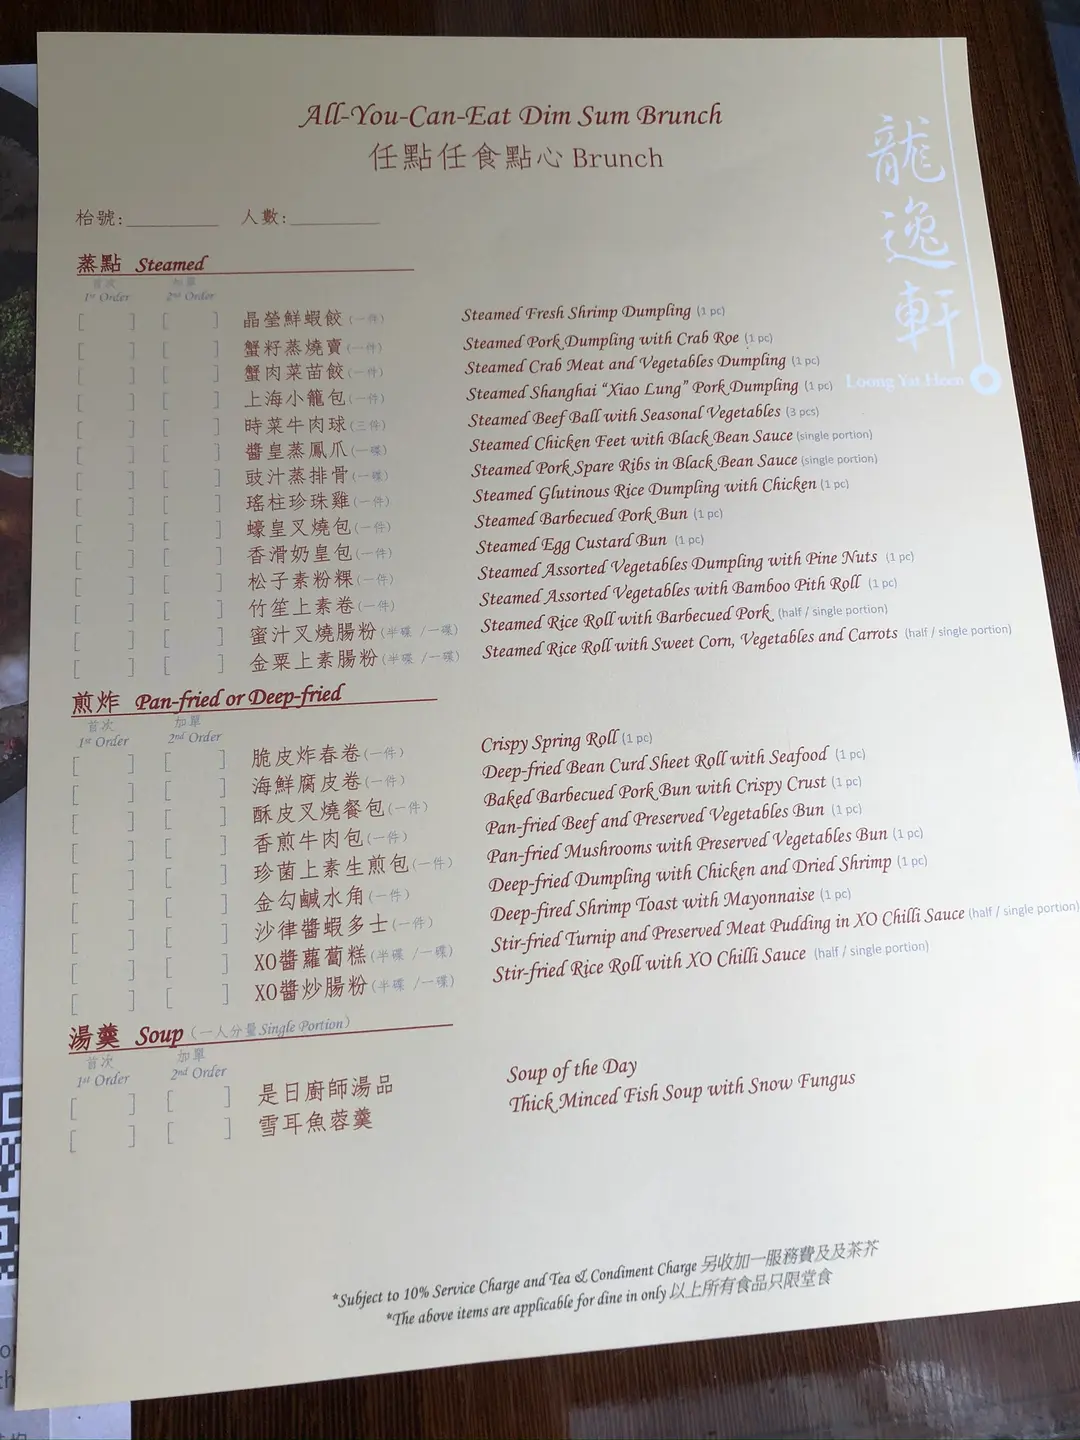 All-You-Can-Eat Dim Sum Brunch
任點任食點心 Brunch
龍逸軒
Loong Yat Heen
枱號:________ 人數:________
蒸點 Steamed
首次 加單
1st Order 2nd Order
[ ] [ ] 晶瑩鮮蝦餃(一件) Steamed Fresh Shrimp Dumpling (1 pc)
[ ] [ ] 蟹籽蒸燒賣(一件) Steamed Pork Dumpling with Crab Roe (1 pc)
[ ] [ ] 蟹肉菜苗餃(一件) Steamed Crab Meat and Vegetables Dumpling (1 pc)
[ ] [ ] 上海小籠包(一件) Steamed Shanghai “Xiao Lung” Pork Dumpling (1 pc)
[ ] [ ] 時菜牛肉球(三件) Steamed Beef Ball with Seasonal Vegetables (3 pcs)
[ ] [ ] 醬皇蒸鳳爪(一碟) Steamed Chicken Feet with Black Bean Sauce (single portion)
[ ] [ ] 豉汁蒸排骨(一碟) Steamed Pork Spare Ribs in Black Bean Sauce (single portion)
[ ] [ ] 瑤柱珍珠雞(一件) Steamed Glutinous Rice Dumpling with Chicken (1 pc)
[ ] [ ] 蠔皇叉燒包(一件) Steamed Barbecued Pork Bun (1 pc)
[ ] [ ] 香滑奶皇包(一件) Steamed Egg Custard Bun (1 pc)
[ ] [ ] 松子素粉粿(一件) Steamed Assorted Vegetables Dumpling with Pine Nuts (1 pc)
[ ] [ ] 竹笙上素卷(一件) Steamed Assorted Vegetables with Bamboo Pith Roll (1 pc)
[ ] [ ] 蜜汁叉燒腸粉(半碟 /一碟) Steamed Rice Roll with Barbecued Pork (half / single portion)
[ ] [ ] 金粟上素腸粉(半碟 /一碟) Steamed Rice Roll with Sweet Corn, Vegetables and Carrots (half / single portion)
煎炸 Pan-fried or Deep-fried
首次 加單
1st Order 2nd Order
[ ] [ ] 脆皮炸春卷(一件) Crispy Spring Roll (1 pc)
[ ] [ ] 海鮮腐皮卷(一件) Deep-fried Bean Curd Sheet Roll with Seafood (1 pc)
[ ] [ ] 酥皮叉燒餐包(一件) Baked Barbecued Pork Bun with Crispy Crust (1 pc)
[ ] [ ] 香煎牛肉包(一件) Pan-fried Beef and Preserved Vegetables Bun (1 pc)
[ ] [ ] 珍菌上素生煎包(一件) Pan-fried Mushrooms with Preserved Vegetables Bun (1 pc)
[ ] [ ] 金勾鹹水角(一件) Deep-fried Dumpling with Chicken and Dried Shrimp (1 pc)
[ ] [ ] 沙律醬蝦多士(一件) Deep-fired Shrimp Toast with Mayonnaise (1 pc)
[ ] [ ] XO醬蘿蔔糕(半碟 /一碟) Stir-fried Turnip and Preserved Meat Pudding in XO Chilli Sauce (half / single portion)
[ ] [ ] XO醬炒腸粉(半碟 /一碟) Stir-fried Rice Roll with XO Chilli Sauce (half / single portion)
湯羹 Soup (一人分量Single Portion)
首次 加單
1st Order 2nd Order
[ ] [ ] 是日廚師湯品 Soup of the Day
[ ] [ ] 雪耳魚蓉羹 Thick Minced Fish Soup with Snow Fungus
*Subject to 10% Service Charge and Tea & Condiment Charge 另收加一服務費及及茶芥
*The above items are applicable for dine in only 以上所有食品只限堂食